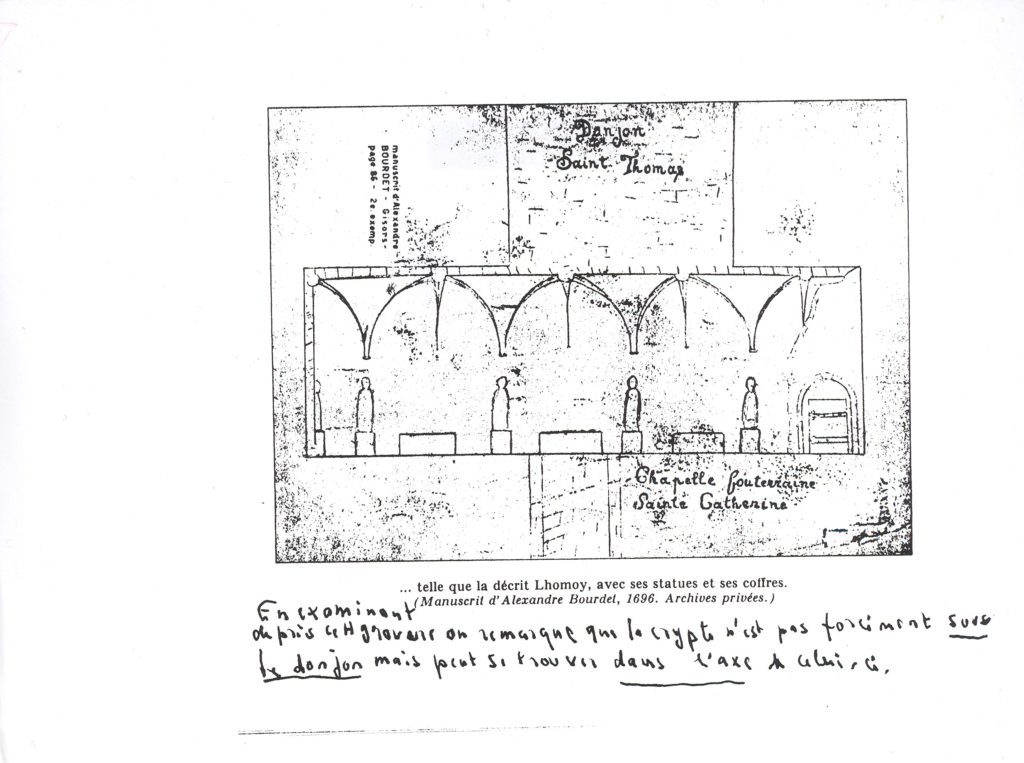 Donjon
Saint Thomas
manuscrit d'Alexandre
BOURDET - Gisors-
page 86 - 2e exemp.
Chapelle souterraine
Sainte Catherine
... telle que la décrit Lhomoy, avec ses statues et ses coffres.
(Manuscrit d'Alexandre Bourdet, 1696. Archives privées.)
En examinant
de près cette gravure on remarque que la crypte n'est pas forcément sous
le donjon mais peut se trouver dans l'axe de celui-ci.